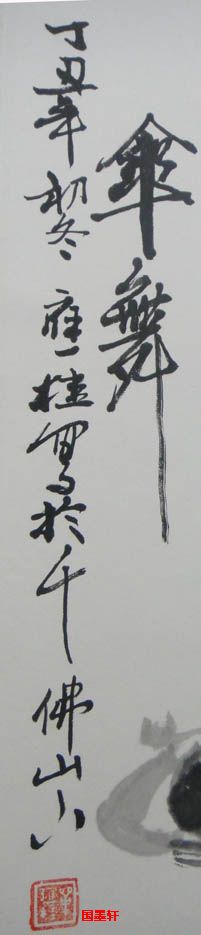 傘舞
丁丑年初冬應一桂寫於千佛山下
国墨轩